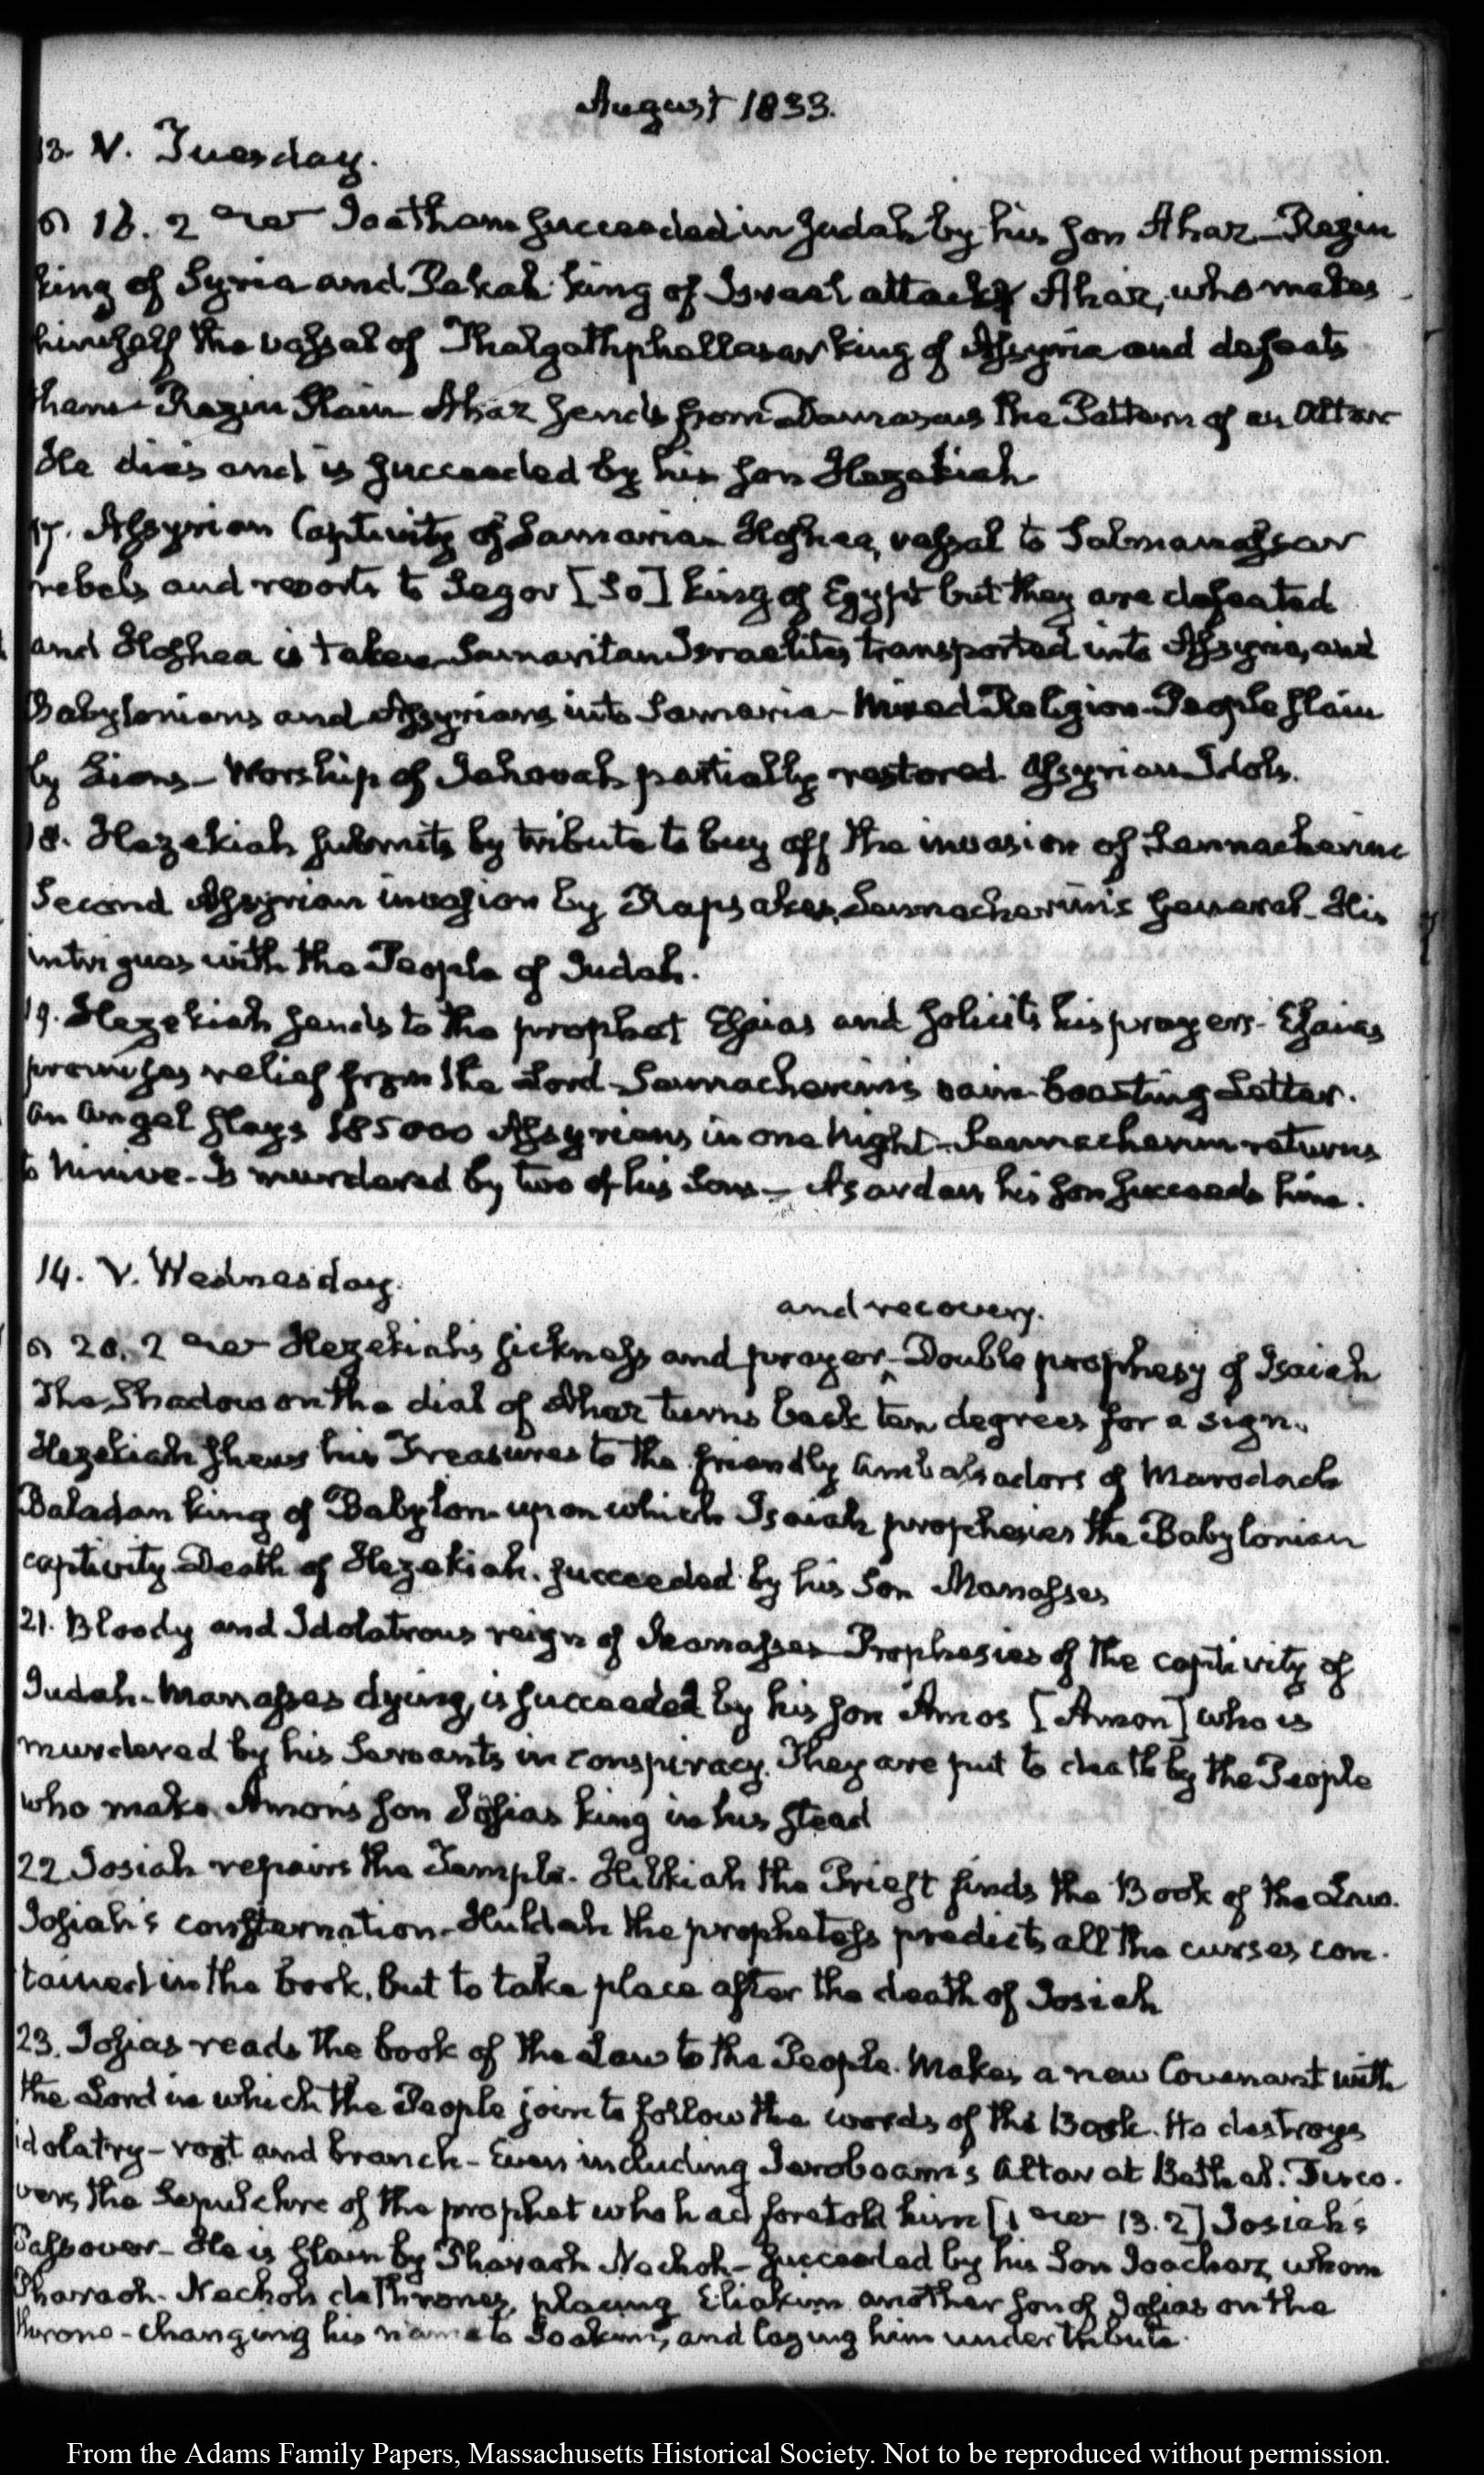 August 1833.
13. V. Tuesday.
16. 2 Joatham succeeded in Judah by his son Ahaz — Rezin
king of Syria and Pekah king of Israel attack Ahaz, who makes
himself the vassal of Thalgathphellasar king of Assyria and defeats
them — Rezin slain — Ahaz sends from Damascus the Pattern of an Altar
He dies and is succeeded by his son Hezekiah
17. Assyrian Captivity of Samaria — Hoshea, vassal to Salmanassar
rebels and resorts to Segor [So] king of Egypt but they are defeated
and Hoshea is taken — Samaritan Israelites transported into Assyria, and
Babylonians and Assyrians into Samaria — Mixed Religion — People slain
by Lions — Worship of Jehovah partially restored. Assyrian Idols.
18. Hezekiah submits by tribute to buy off the invasion of Sennacherim
Second Assyrian invasion by Rapsakes, Sennacherim's General — His
intrigues with the People of Judah.
19. Hezekiah sends to the prophet Esaias and solicits his prayers — Esaias
promises relief from the Lord — Sennacherim's vain-boasting Letter.
An angel slays 185000 Assyrians in one Night — Sennacherim returns
to Ninive — Is murdered by two of his Sons — Asardan his son succeeds him.
14. V. Wednesday.
and recovery.
20. 2 Hezekiah's sickness and prayer ‸ — Double prophesy of Isaiah
The Shadow on the dial of Ahaz turns back ten degrees for a sign.
Hezekiah shews his Treasures to the friendly Ambassadors of Marodach
Baladan king of Babylon upon which Isaiah prophesies the Babylonian
captivity — Death of Hezekiah. succeeded by his Son Manasses
21. Bloody and Idolatrous reign of Manasses — Prophesies of the captivity of
Judah — Manasses dying, is succeeded by his son Amos [Amon] who is
murdered by his Servants in conspiracy. They are put to death by the People
who make Amon's son Josias king in his stead
22 Josiah repairs the Temple. Hilkiah the Priest finds the Book of the Law.
Josiah's consternation — Huldah the prophetess predicts all the curses con-
tained in the book, but to take place after the death of Josiah
23. Josias reads the book of the Law to the People. Makes a new Covenant with
the Lord in which the People join to follow the words of the Book. He destroys
idolatry — root and branch — Even including Jeroboam's Altar at Bethel. Disco-
vers the Sepulchre of the prophet who had foretold him [1 13. 2] Josiah's
Passover — He is slain by Pharaoh Nechoh — succeeded by his Son Joachaz, whom
Pharaoh-Nechoh dethrones, placing Eliakim another son of Josias on the
throne — changing his name to Joakim, and laying him under tribute.
From the Adams Family Papers, Massachusetts Historical Society. Not to be reproduced without permission.